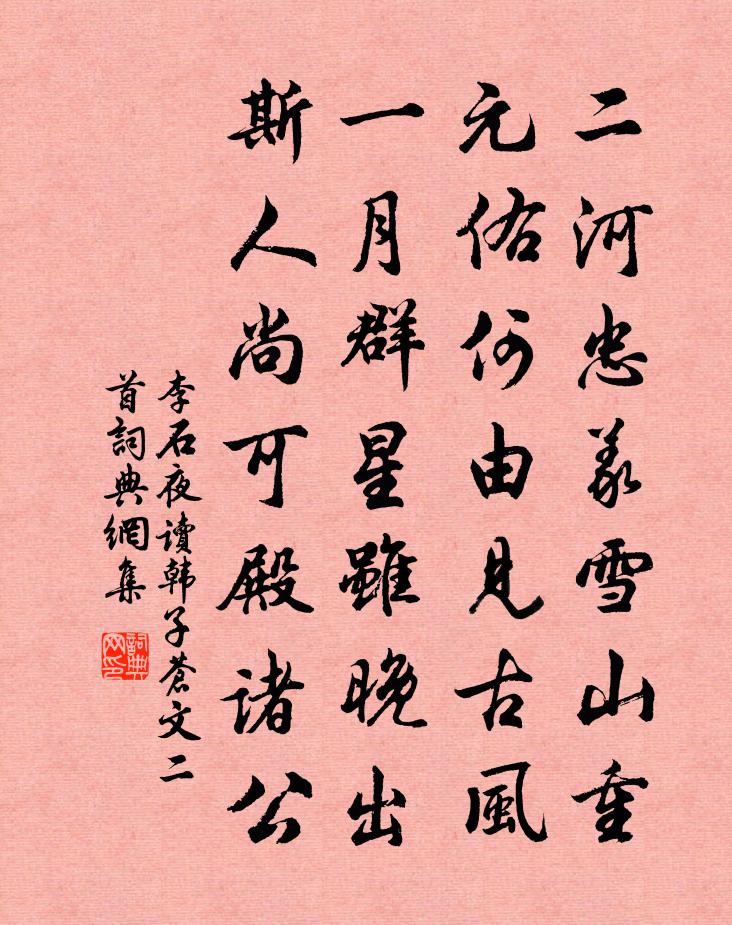 二河忠义雪山重
元佑何由見古風
一月群星雖晚出
斯人尚可殿諸公
李石夜讀韩子蒼文二
首詞典網集
詞典网印